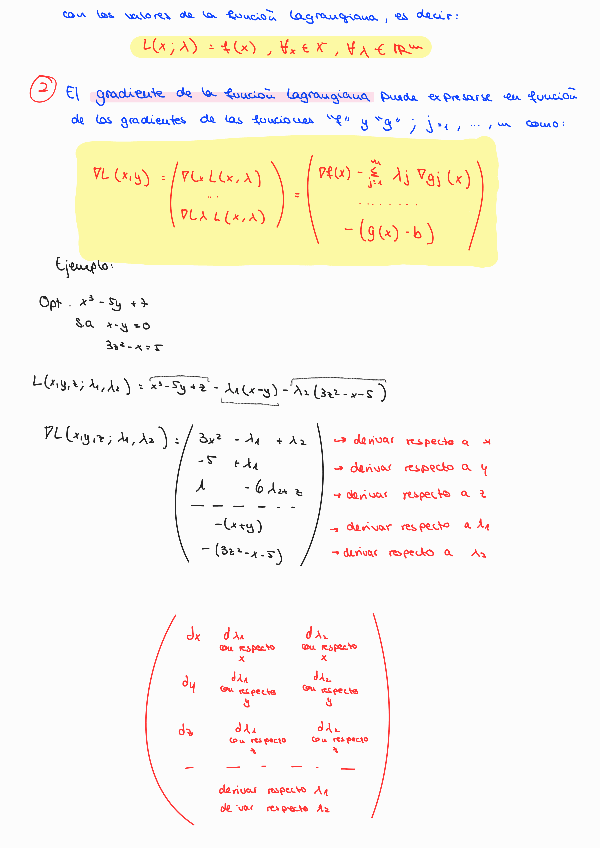 con los valores de la función Lagrangiana, es decir:
L(x;λ) = f(x), ∀x ∈ X, ∀λ ∈ ℝᵐ
② El gradiente de la función Lagrangiana puede expresarse en función
de los gradientes de las funciones "f" y "g"; j=1, ..., m como:
∇L(x,y) = (∇Lx L(x,λ) ... ∇Lλ L(x,λ)) = (∇f(x) - Σ j=1 m λj ∇gj(x) ........ -(g(x)-b))
Ejemplo:
Opt. x³ - 5y + z
S.a x-y=0
3z²-x=5
L(x,y,z; λ1,λ2) = x³-5y+z - λ1(x-y) - λ2(3z²-x-5)
∇L(x,y,z; λ1,λ2) = 3x² - λ1 + λ2 → derivar respecto a x
-5 + λ1 → derivar respecto a y
1 - 6λ2z → derivar respecto a z
- - - - - -
-(x+y) → derivar respecto a λ1
-(3z²-x-5) → derivar respecto a λ2
dx dλ1 dλ2
con respecto con respecto
x x
dy dλ1 dλ2
con respecto con respecto
y y
dz dλ1 dλ2
con respecto con respecto
z z
- - - - - -
derivar respecto λ1
derivar respecto λ2